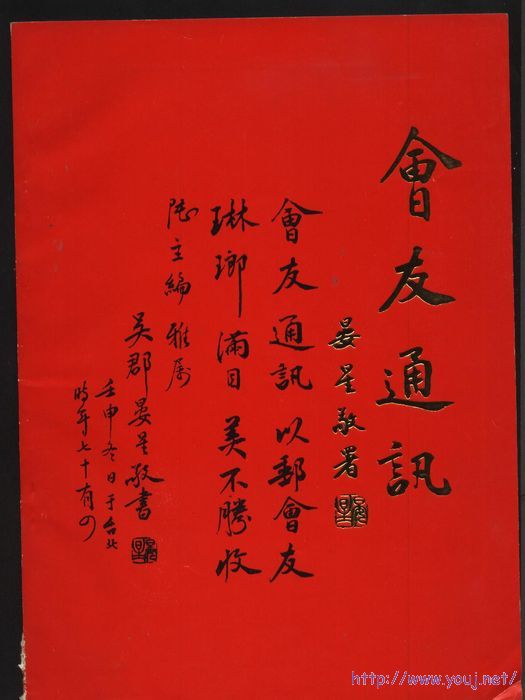 會友通訊
晏星敬署
會友通訊以郵會友
琳瑯滿目美不勝收
陸主編雅屬
吳郡晏星敬書
壬申冬日于台北
時年七十有四
http://www.youj.net/